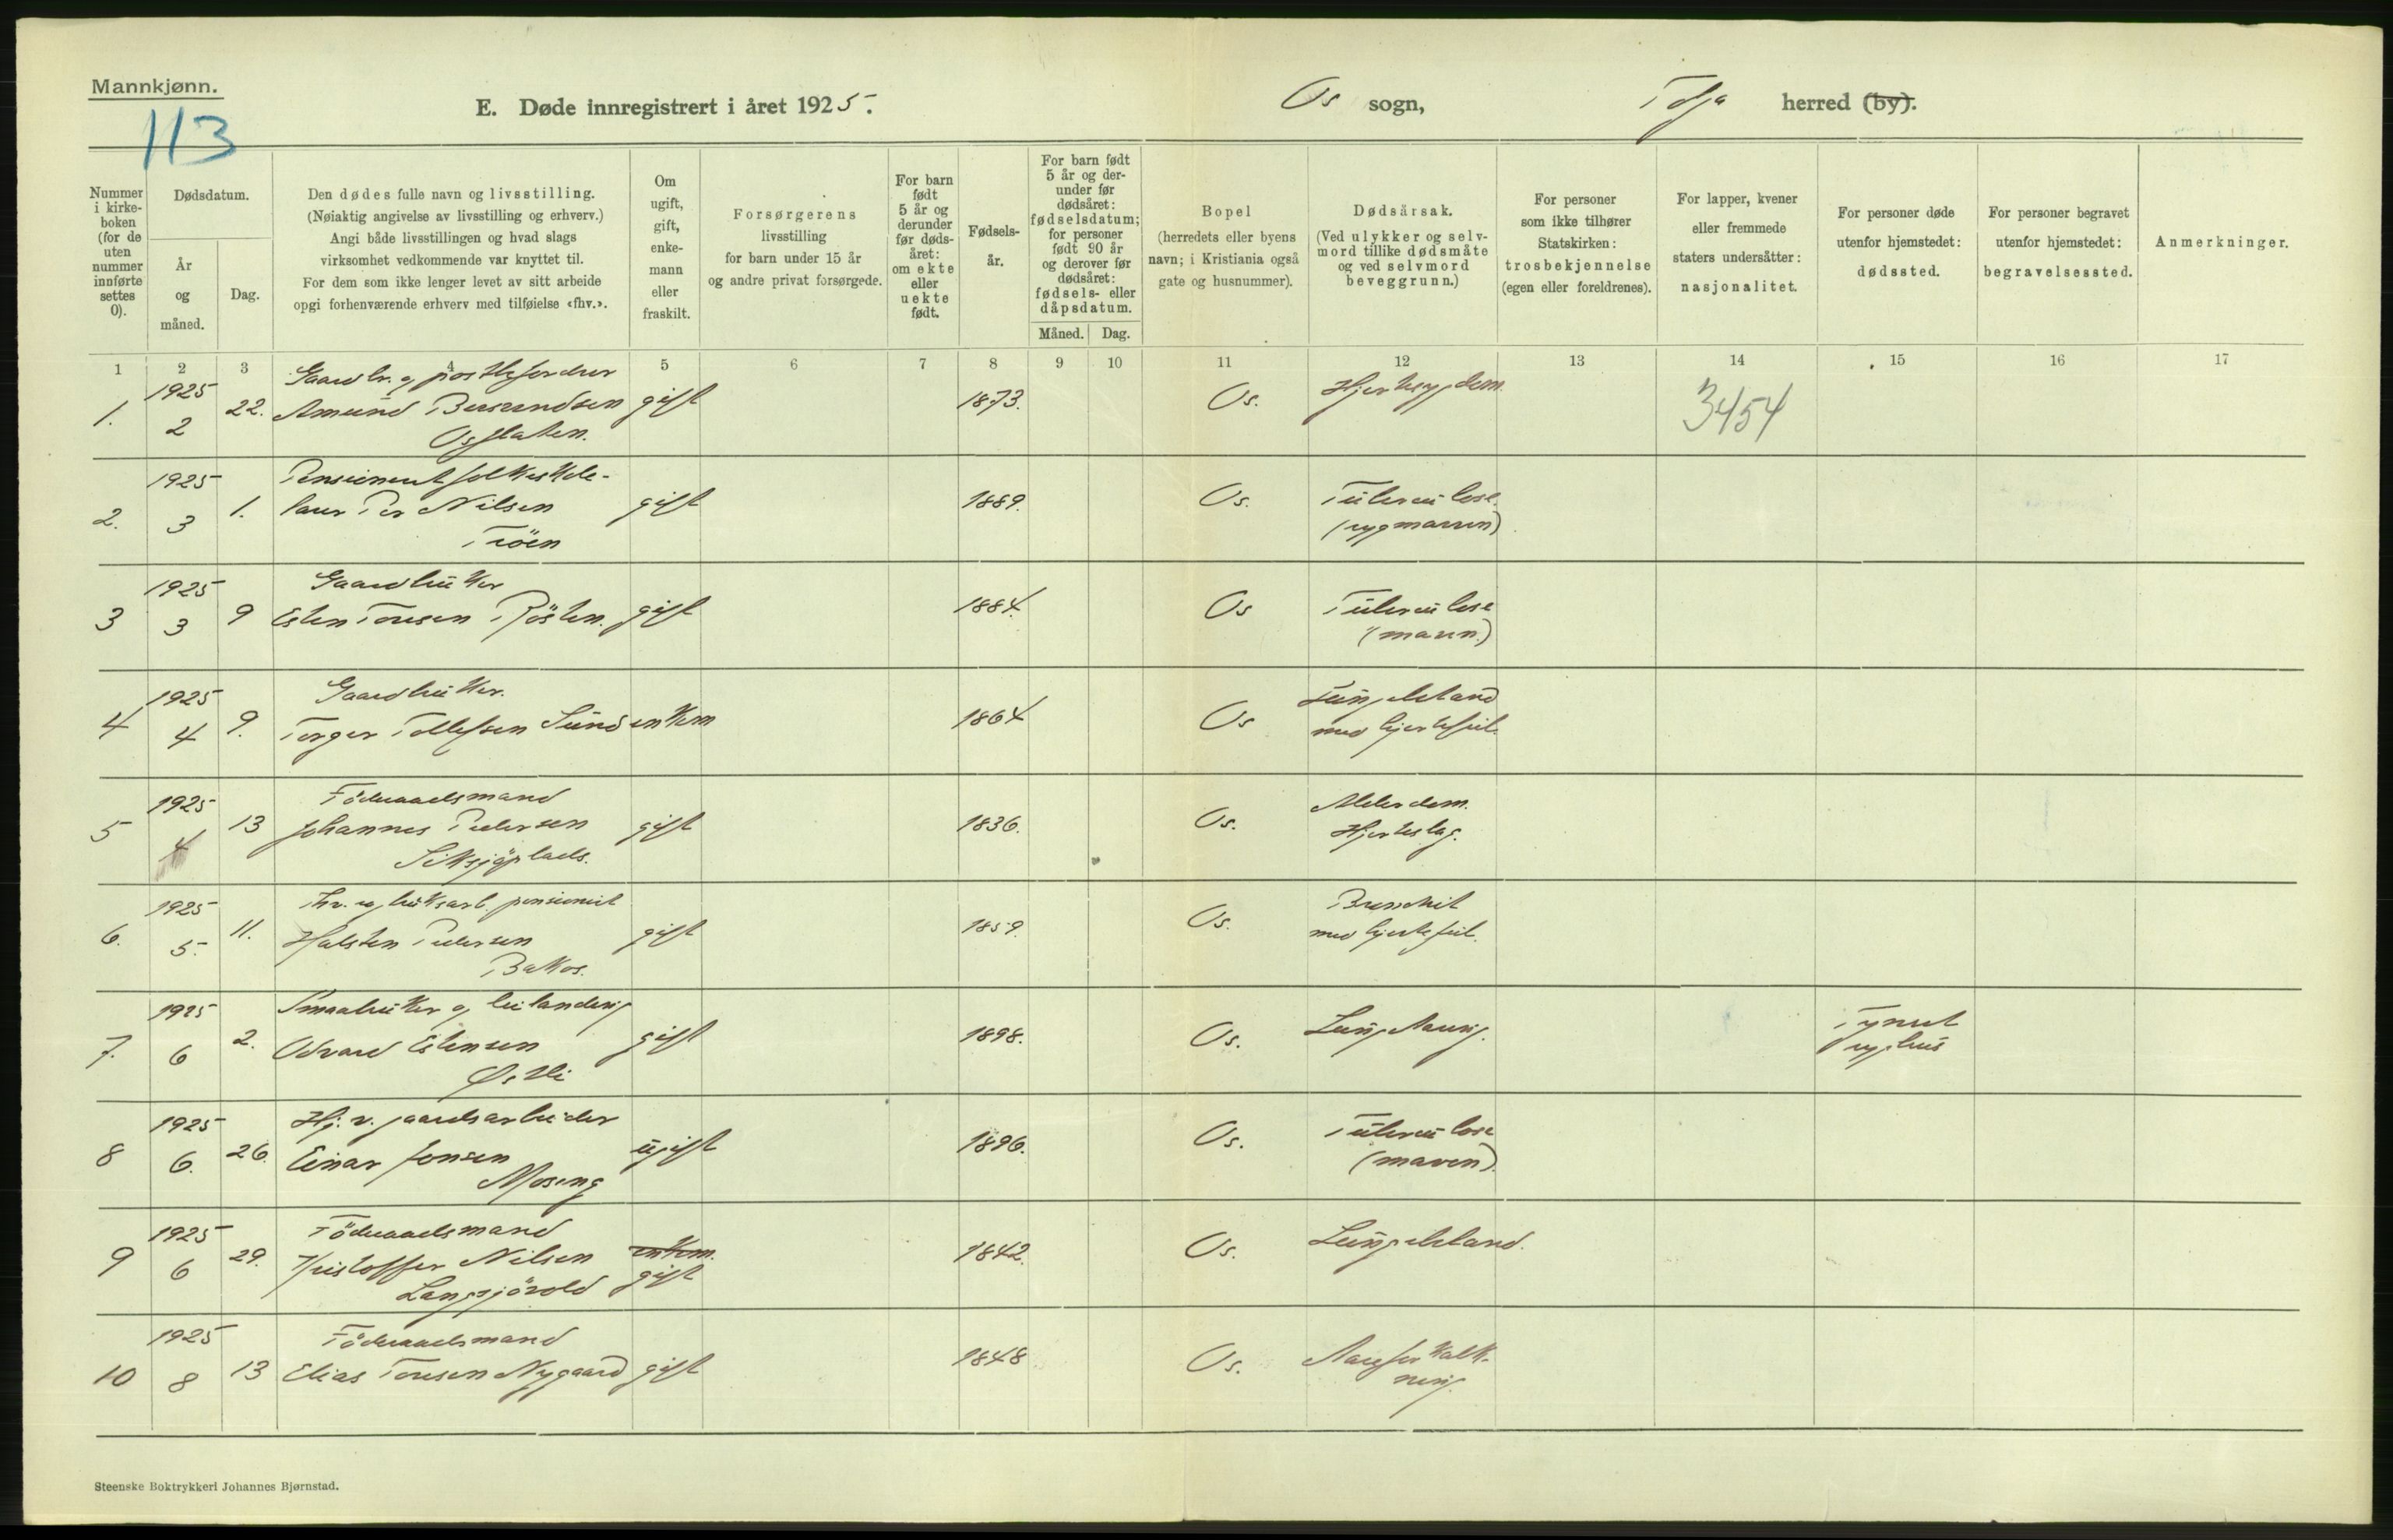 Mannkjønn.
113
E. Døde innregistrert i året 1925.
Os sogn,
Tolga herred (by).
Nummer i kirke-boken (for de uten nummer innførte settes 0).
Dødsdatum.
År og måned.
Dag.
Den dødes fulle navn og livsstilling.
(Nøiaktig angivelse av livsstilling og erhverv.)
Angi både livsstillingen og hvad slags
virksomhet vedkommende var knyttet til.
For dem som ikke lenger levet av sitt arbeide
opgi forhenværende erhverv med tilføielse «fhv.».
Om ugift, gift, enke-mann eller fraskilt.
Forsørgerens
livsstilling
for barn under 15 år
og andre privat forsørgede.
For barn født 5 år og derunder før døds-året: om ekte eller uekte født.
Fødsels-år.
For barn født 5 år og der-under før dødsåret: fødselsdatum; for personer født 90 år og derover før dødsåret: fødsels- eller dåpsdatum.
Måned. Dag.
Bopel
(herredets eller byens
navn; i Kristiania også
gate og husnummer).
Dødsårsak.
(Ved ulykker og selv-
mord tillike dødsmåte
og ved selvmord
beveggrunn.)
For personer
som ikke tilhører
Statskirken:
trosbekjennelse
(egen eller foreldrenes).
For lapper, kvener
eller fremmede
staters undersåtter:
nasjonalitet.
For personer døde
utenfor hjemstedet:
dødssted.
For personer begravet
utenfor hjemstedet:
begravelsessted.
Anmerkninger.
1 2 3 4 5 6 7 8 9 10 11 12 13 14 15 16 17
Gaardbr. og
1. 1925 2 22. Amund gift 1873. Os. Hjertesygdom. 3454
Osflaten.
Pensionert folkeskole-
2. 1925 3 1. lærer Per Nilsen gift 1889. Os. Tuberculose.
Tröen (rygmarven)
Gaardbruker
3 1925 3 9 Esten Tonesen Rösten. gift 1884. Os Tuberculose
(maven.)
Gaardbruker.
4 1925 4 9. Torger Tollefsen Sund enkem 1864 Os
med hjertefeil.
Föderaadsmand
5 1925 4 13 Johannes Pedersen gift 1836. Os. Alderdom.
Siksjöplads. Hjerteslag.
Fhv. pensionert
6. 1925 5. 11. Halsten Pedersen gift 1859. Os. Bronchit
Bakos. med hjertefeil.
Smaabruker og
7. 1925 6 2. Edvard Estensen gift 1898. Os. Tynset
Østli sygehus
Hj. v. gaardsarbeider
8 1925 6. 26. Einar Jonsen ugift 1896. Os. Tuberculose
Moseng (maven).
Föderaadsmand
9 1925 6 29. Kristoffer Nilsen enkem. gift 1842. Os.
Langsjövold
Föderaadsmand
10 1925 8 13 Elias Tonesen Nygaard gift 1848 Os. Aareforkalk-
ning.
Steenske Boktrykkeri Johannes Bjørnstad.